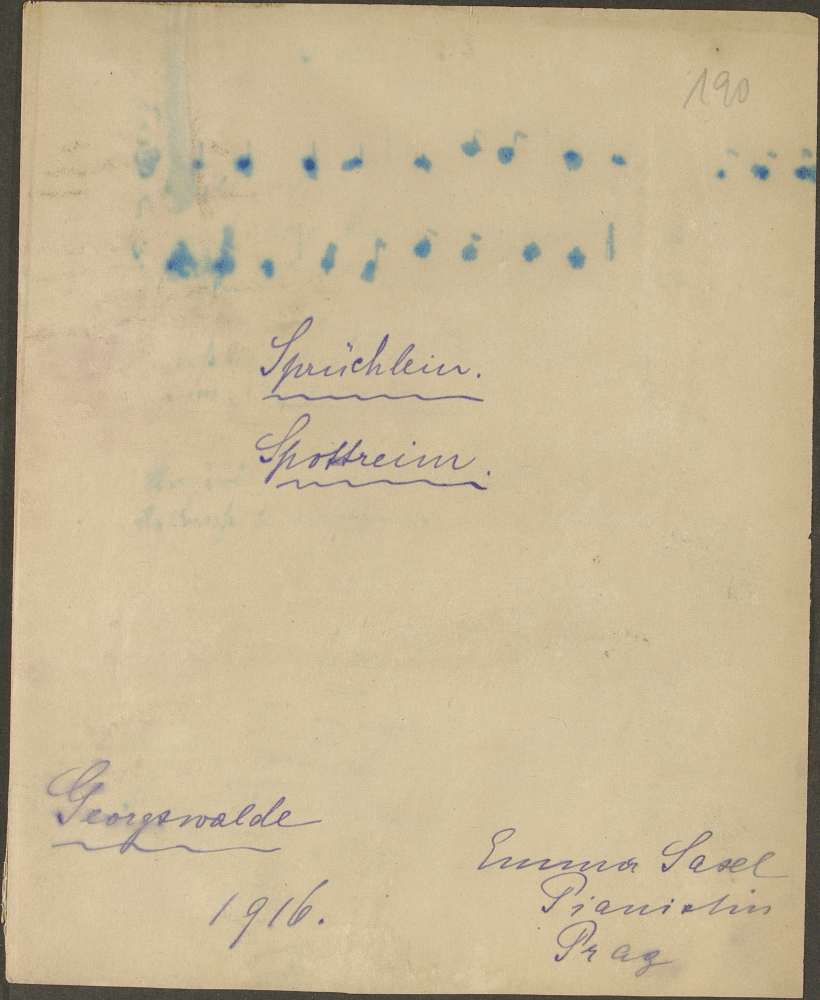 190
Sprüchlein.
Spottreim.
Georgswalde
1916.
Emma Sasel
Pianistin
Prag